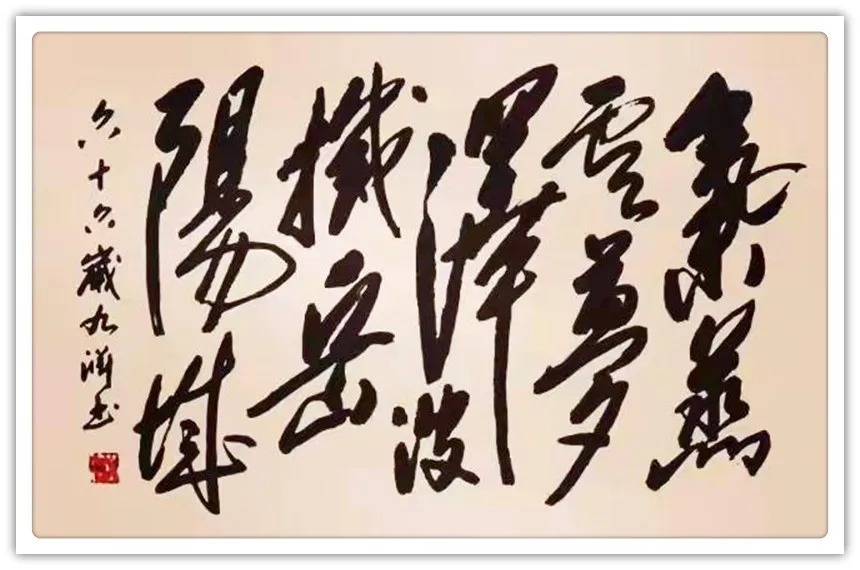 氣蒸
雲夢
澤波
撼岳
陽城
六十六歲九书